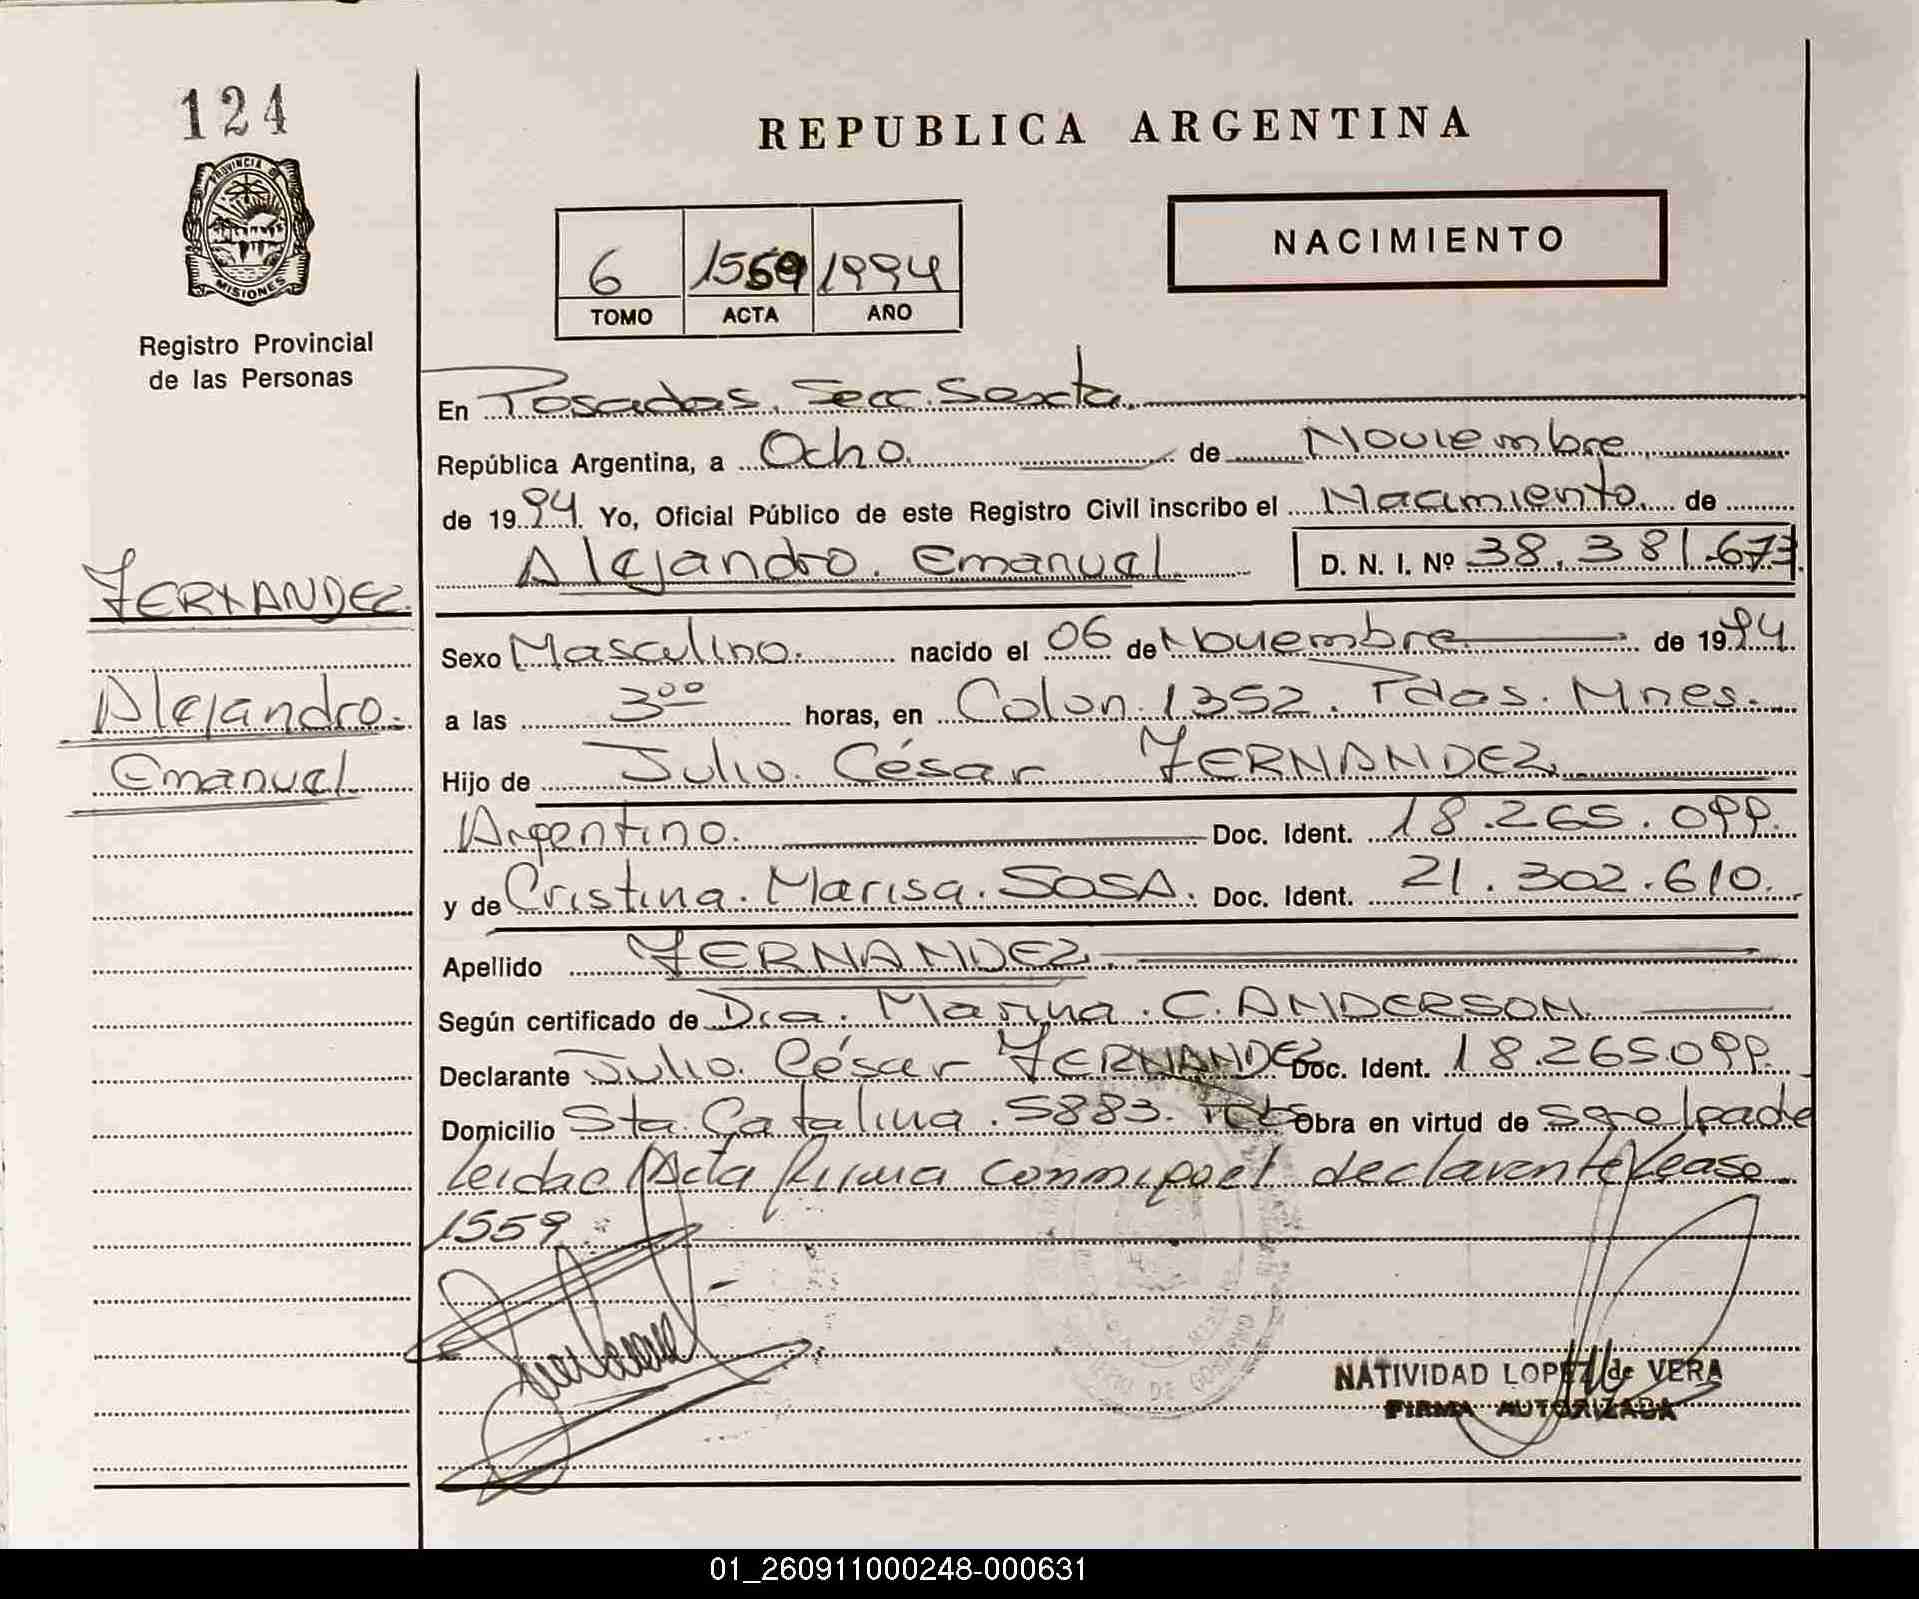 124
REPUBLICA ARGENTINA
PROVINCIA DE
MISIONES
Registro Provincial
de las Personas
NACIMIENTO
6 1559 1994
TOMO ACTA AÑO
En Posadas, Secc. Sexta.
República Argentina, a Ocho. de Noviembre
de 1994. Yo, Oficial Público de este Registro Civil inscribo el Nacimiento. de
Alejandro. Emanuel D. N. I. Nº 38.381.673
FERNANDEZ
Alejandro.
Emanuel
Sexo Masculino. nacido el 06 de Noviembre de 1994.
a las 3⁰⁰ horas, en Colon. 1352. Pdas. Mnes.
Hijo de Julio. César FERNANDEZ
Argentino. Doc. Ident. 18.265.099.
y de Cristina. Marisa. SOSA. Doc. Ident. 21.302.610.
Apellido FERNANDEZ.
Según certificado de Dra. Marina. C. ANDERSON
Declarante Julio. César FERNANDEZ Doc. Ident. 18.265.099.
Domicilio Sta. Catalina. 5883. Obra en virtud de
leida Acta firma conmigo el declarante Lease
1559
NATIVIDAD LOPEZ de VERA
FIRMA AUTORIZADA
01_260911000248-000631